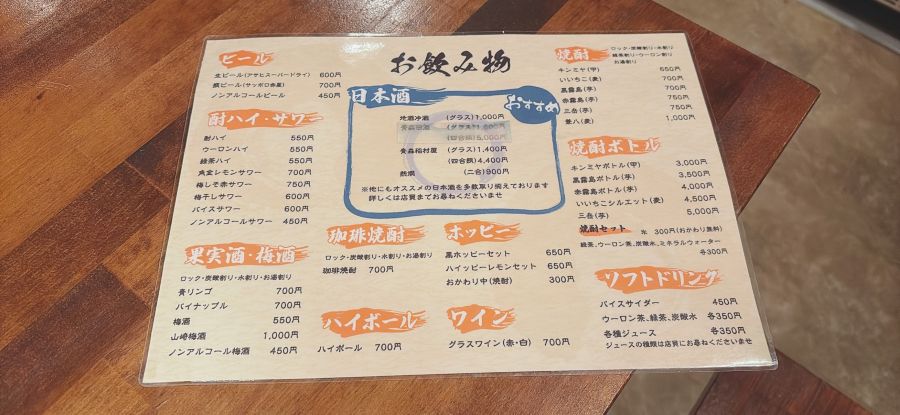 お飲み物
ビール
生ビール(アサヒスーパードライ) 600円
瓶ビール(サッポロ赤星) 700円
ノンアルコールビール 450円
酎ハイ・サワー
酎ハイ 550円
ウーロンハイ 550円
緑茶ハイ 550円
魚金レモンサワー 700円
梅しそ赤サワー 750円
梅干しサワー 600円
バイスサワー 600円
ノンアルコールサワー 450円
果実酒・梅酒
ロック・炭酸割り・水割り・お湯割り
青リンゴ 700円
パイナップル 700円
梅酒 550円
山崎梅酒 1,000円
ノンアルコール梅酒 450円
日本酒
おすすめ
地酒冷酒 (グラス)1,000円
(グラス)
(四合瓶)5,000円
青森稲村屋 (グラス)1,400円
(四合瓶)4,400円
熱燗 (二合)900円
※他にもオススメの日本酒を多数取り揃えております
詳しくは店員までお尋ねくださいませ
珈琲焼酎
ロック・炭酸割り・水割り・お湯割り
珈琲焼酎 700円
ハイボール
ハイボール 700円
ホッピー
黒ホッピーセット 650円
ハイッピーレモンセット 650円
おかわり中(焼酎) 300円
ワイン
グラスワイン(赤・白) 700円
焼酎
ロック・炭酸割り・水割り
緑茶割り・ウーロン割り
お湯割り
キンミヤ(甲) 550円
いいちこ(麦) 700円
黒霧島(芋) 700円
赤霧島(芋) 750円
三岳(芋) 750円
兼八(麦) 1,000円
焼酎ボトル
キンミヤボトル(甲) 3,000円
黒霧島ボトル(芋) 3,500円
赤霧島ボトル(芋) 4,000円
いいちこシルエット(麦) 4,500円
三岳(芋) 5,000円
焼酎セット 氷 300円(おかわり無料)
緑茶、ウーロン茶、炭酸水、ミネラルウォーター
各300円
ソフトドリンク
バイスサイダー 450円
ウーロン茶、緑茶、炭酸水 各350円
各種ジュース 各350円
ジュースの種類は店員にお尋ねくださいませ